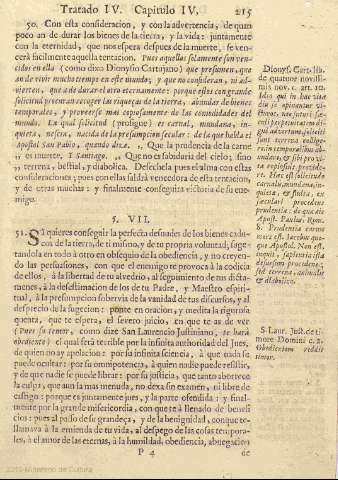 Tratado IV. Capitulo IV. 215
50. Con esta consideracion, y con la advertencia, de quan
poco an de durar los bienes de la tierra, y la vida: juntamente
con la eternidad, que nos espera despues de la muerte, se ven-
cerà facilmente aquella tentacion. Pues aquellas solamente son ven-
cidos en ella (como dixo Dionysio Cartujano) que presumen, que
an de vivir mucho tempo en este mundo; y que no consideran, ni ad-
vierten, que à da durar el otro eternamente: porque estos con grande
solicitud procuran recoger las riqueças de la tierra, abundar de bienes
temporales, y proveerse mas copiosamente de las comodidades del
mundo. La qual solicitud (prosigue) es carnal, mundana, in-
quieta, nefera, nacida de la presumpcion secular: de la que habla el
Apostol San Pablo, quando dixo. „ Que la prudencia de la carne
„ es muerte. I Santiago. „ Que no es sabiduria del cielo; sino
„ terrena, bestial, y diabolica. Desechela pues el alma con estas
consideraciones; pues con ellas saldrà vencedora de esta tentacion,
y de otras muchas: y finalmente conseguirà victoria de su ene-
migo.
§. VII.
51. SI quieres conseguir la perfecta desnudes de los bienes caducos
con de la tierra, de ti mismo, y de tu propria voluntad; suge-
tandola en todo à otro en obsequio de la obediencia, y no creyen-
do las persuasiones, con que el enemigo te provoca à la codicia
de ellos, à la libertad de tu alvedrio, al seguimiento de tus dicta-
menes, à la desestimacion de los de tu Padre, y Maestro espiri-
tual, à la presumpcion sobervia de la vanidad de tus discursos, y al
desprecio de la sugecion: ponte en oracion, y medita la rigorosa
quenta, que te espera, el severo juicio, en que te as de ver
(Pues su temor, como dize San Laurencio Justiniano, te harà
obediente) el qual serà terrible por la infinita authoridad del Jues,
de quien no ay apelacion: por su infinita sciencia, à que nada se
puede ocultar: por su omnipotencia, à quien nadie puede resistir,
y de que nadie se puede librar: por su justicia, que tanto aborrece
la culpa, que aun la mas menuda, no dexa sin examen, ni libre de
castigo: porque es juntamente jues, y la parte ofendida: y final-
mente por la grande misericordia, con que te à llenado de benefi-
cios: pues al passo de su grandeça, y de la benignidad, con que te
llamava à la emienda de tu vida, al despego de las cosas tempora-
les, à el amor de las eternas, à la humildad, obediencia, abnegacion
P 4 de
Dionys. Cart. lib.
de quatuor novissi-
mis nov. 1. art. 12.
S. Laur. Just. de ti-
more Domini c. 2.
Obedientem reddit
timor.
2010 Ministerio de Cultura